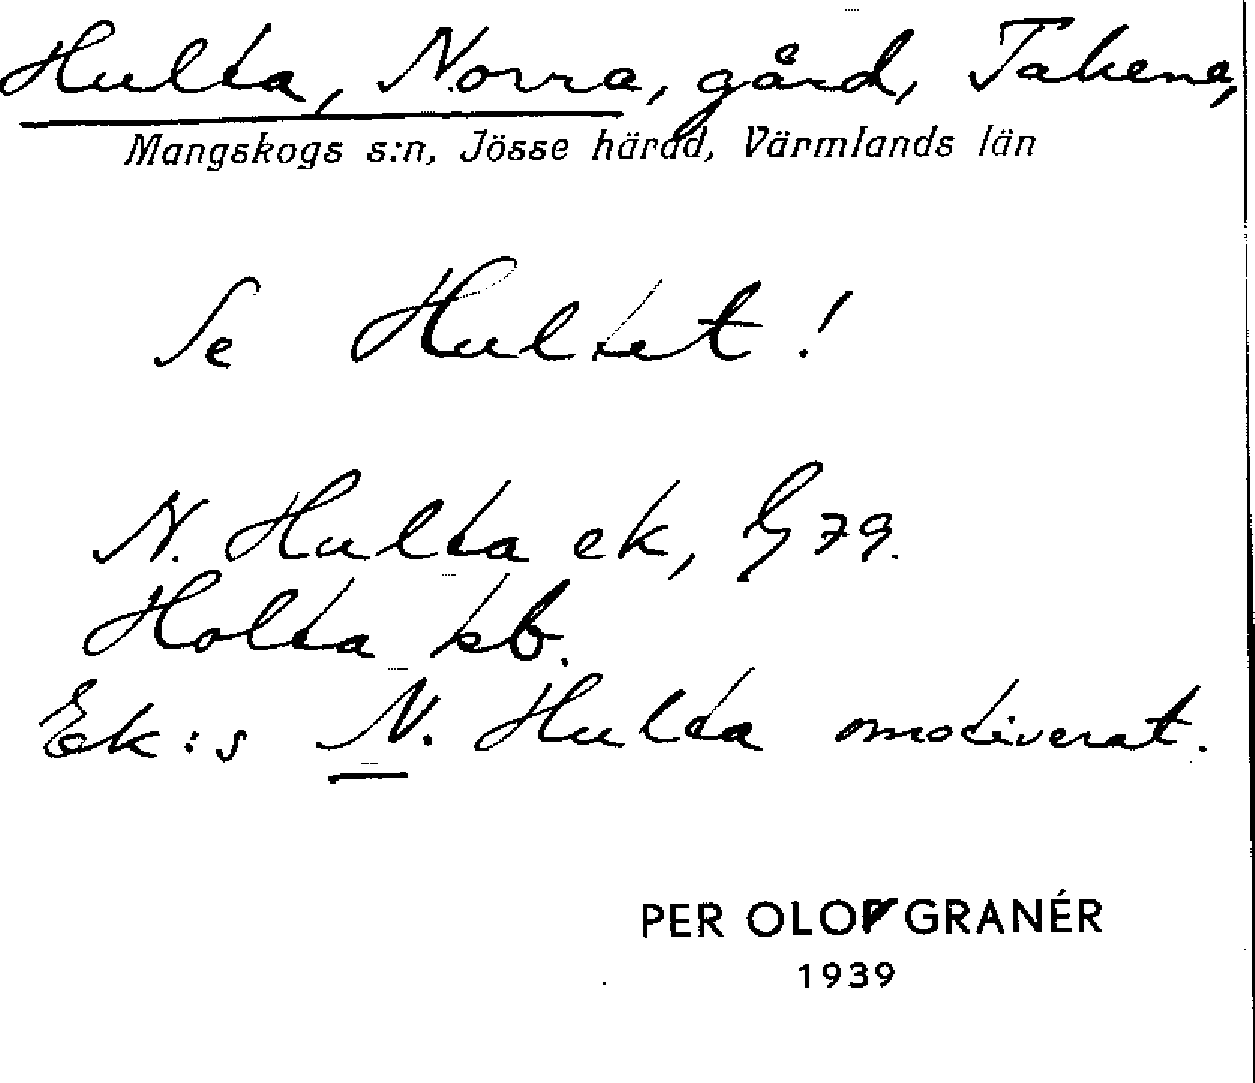 Hulta, Norra, gård, Takene,
Mangskogs s:n, Jösse härad, Värmlands län
Se Hultet!
N. Hulta ek, G 79.
Holta kb.
Ek:s N. Hulta omotiverat.
PER OLOF GRANÉR
1939